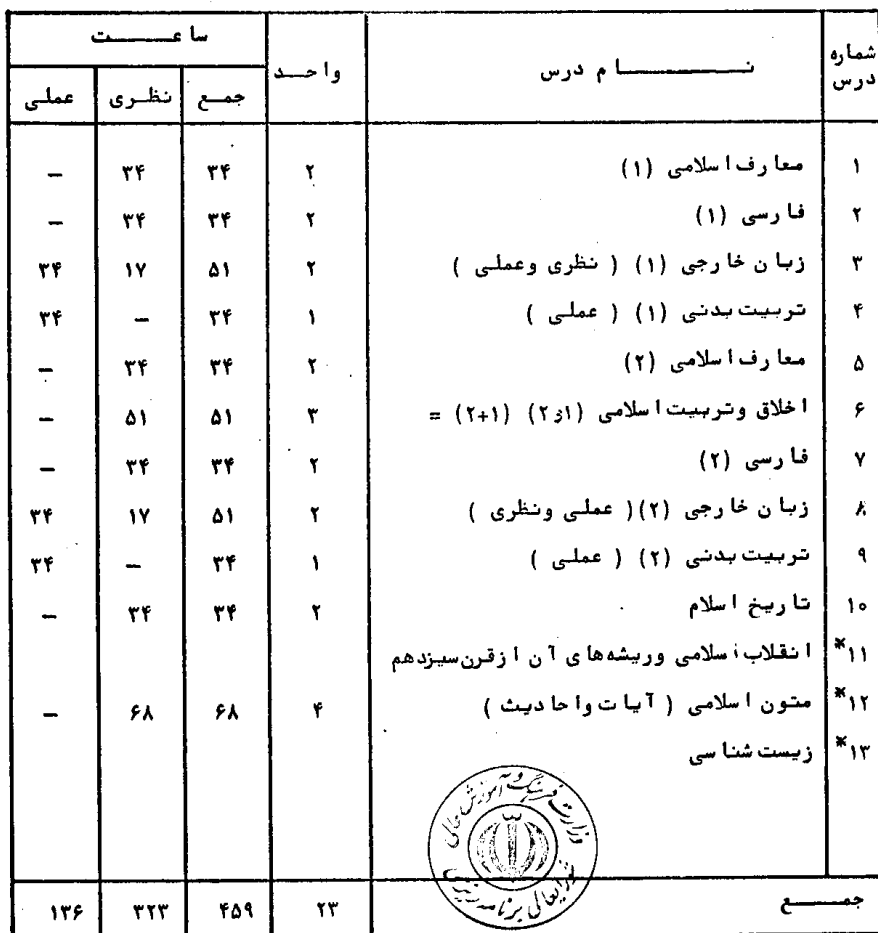 شماره درس | نام درس | واحد | ساعت
جمع | نظری | عملی
۱ | معارف اسلامی (۱) | ۲ | ۳۴ | ۳۴ | –
۲ | فارسی (۱) | ۲ | ۳۴ | ۳۴ | –
۳ | زبان خارجی (۱) ( نظری وعملی ) | ۲ | ۵۱ | ۱۷ | ۳۴
۴ | تربیت بدنی (۱) ( عملی ) | ۱ | ۳۴ | – | ۳۴
۵ | معارف اسلامی (۲) | ۲ | ۳۴ | ۳۴ | –
۶ | اخلاق وتربیت اسلامی (۱و۲) (۱+۲) = | ۳ | ۵۱ | ۵۱ | –
۷ | فارسی (۲) | ۲ | ۳۴ | ۳۴ | –
۸ | زبان خارجی (۲)( عملی ونظری ) | ۲ | ۵۱ | ۱۷ | ۳۴
۹ | تربیت بدنی (۲) ( عملی ) | ۱ | ۳۴ | – | ۳۴
۱۰ | تاریخ اسلام | ۲ | ۳۴ | ۳۴ | –
۱۱* | انقلاب اسلامی وریشه‌های آن ازقرن سیزدهم
۱۲* | متون اسلامی ( آیات واحادیث ) | ۴ | ۶۸ | ۶۸ | –
۱۳* | زیست شناسی
وزارت فرهنگ و آموزش عالی
شورایعالی برنامه ریزی
جمع | ۲۳ | ۴۵۹ | ۳۲۳ | ۱۳۶